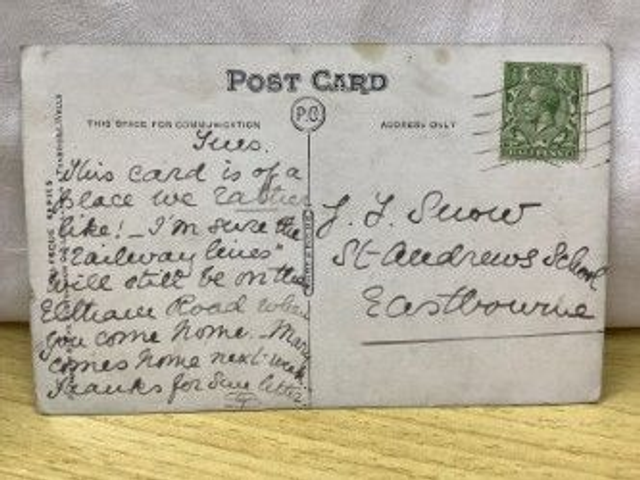 POST CARD
P.C
THIS SPACE FOR COMMUNICATION
ADDRESS ONLY
Tues.
This card is of a
place we rather
like! _ I'm sure the
"railway lines"
will still be on the
Eltham Road when
you come home. _ Mary
comes home next week
Thanks for Sun letter
J. F. Snow
St Andrews School
Eastbourne